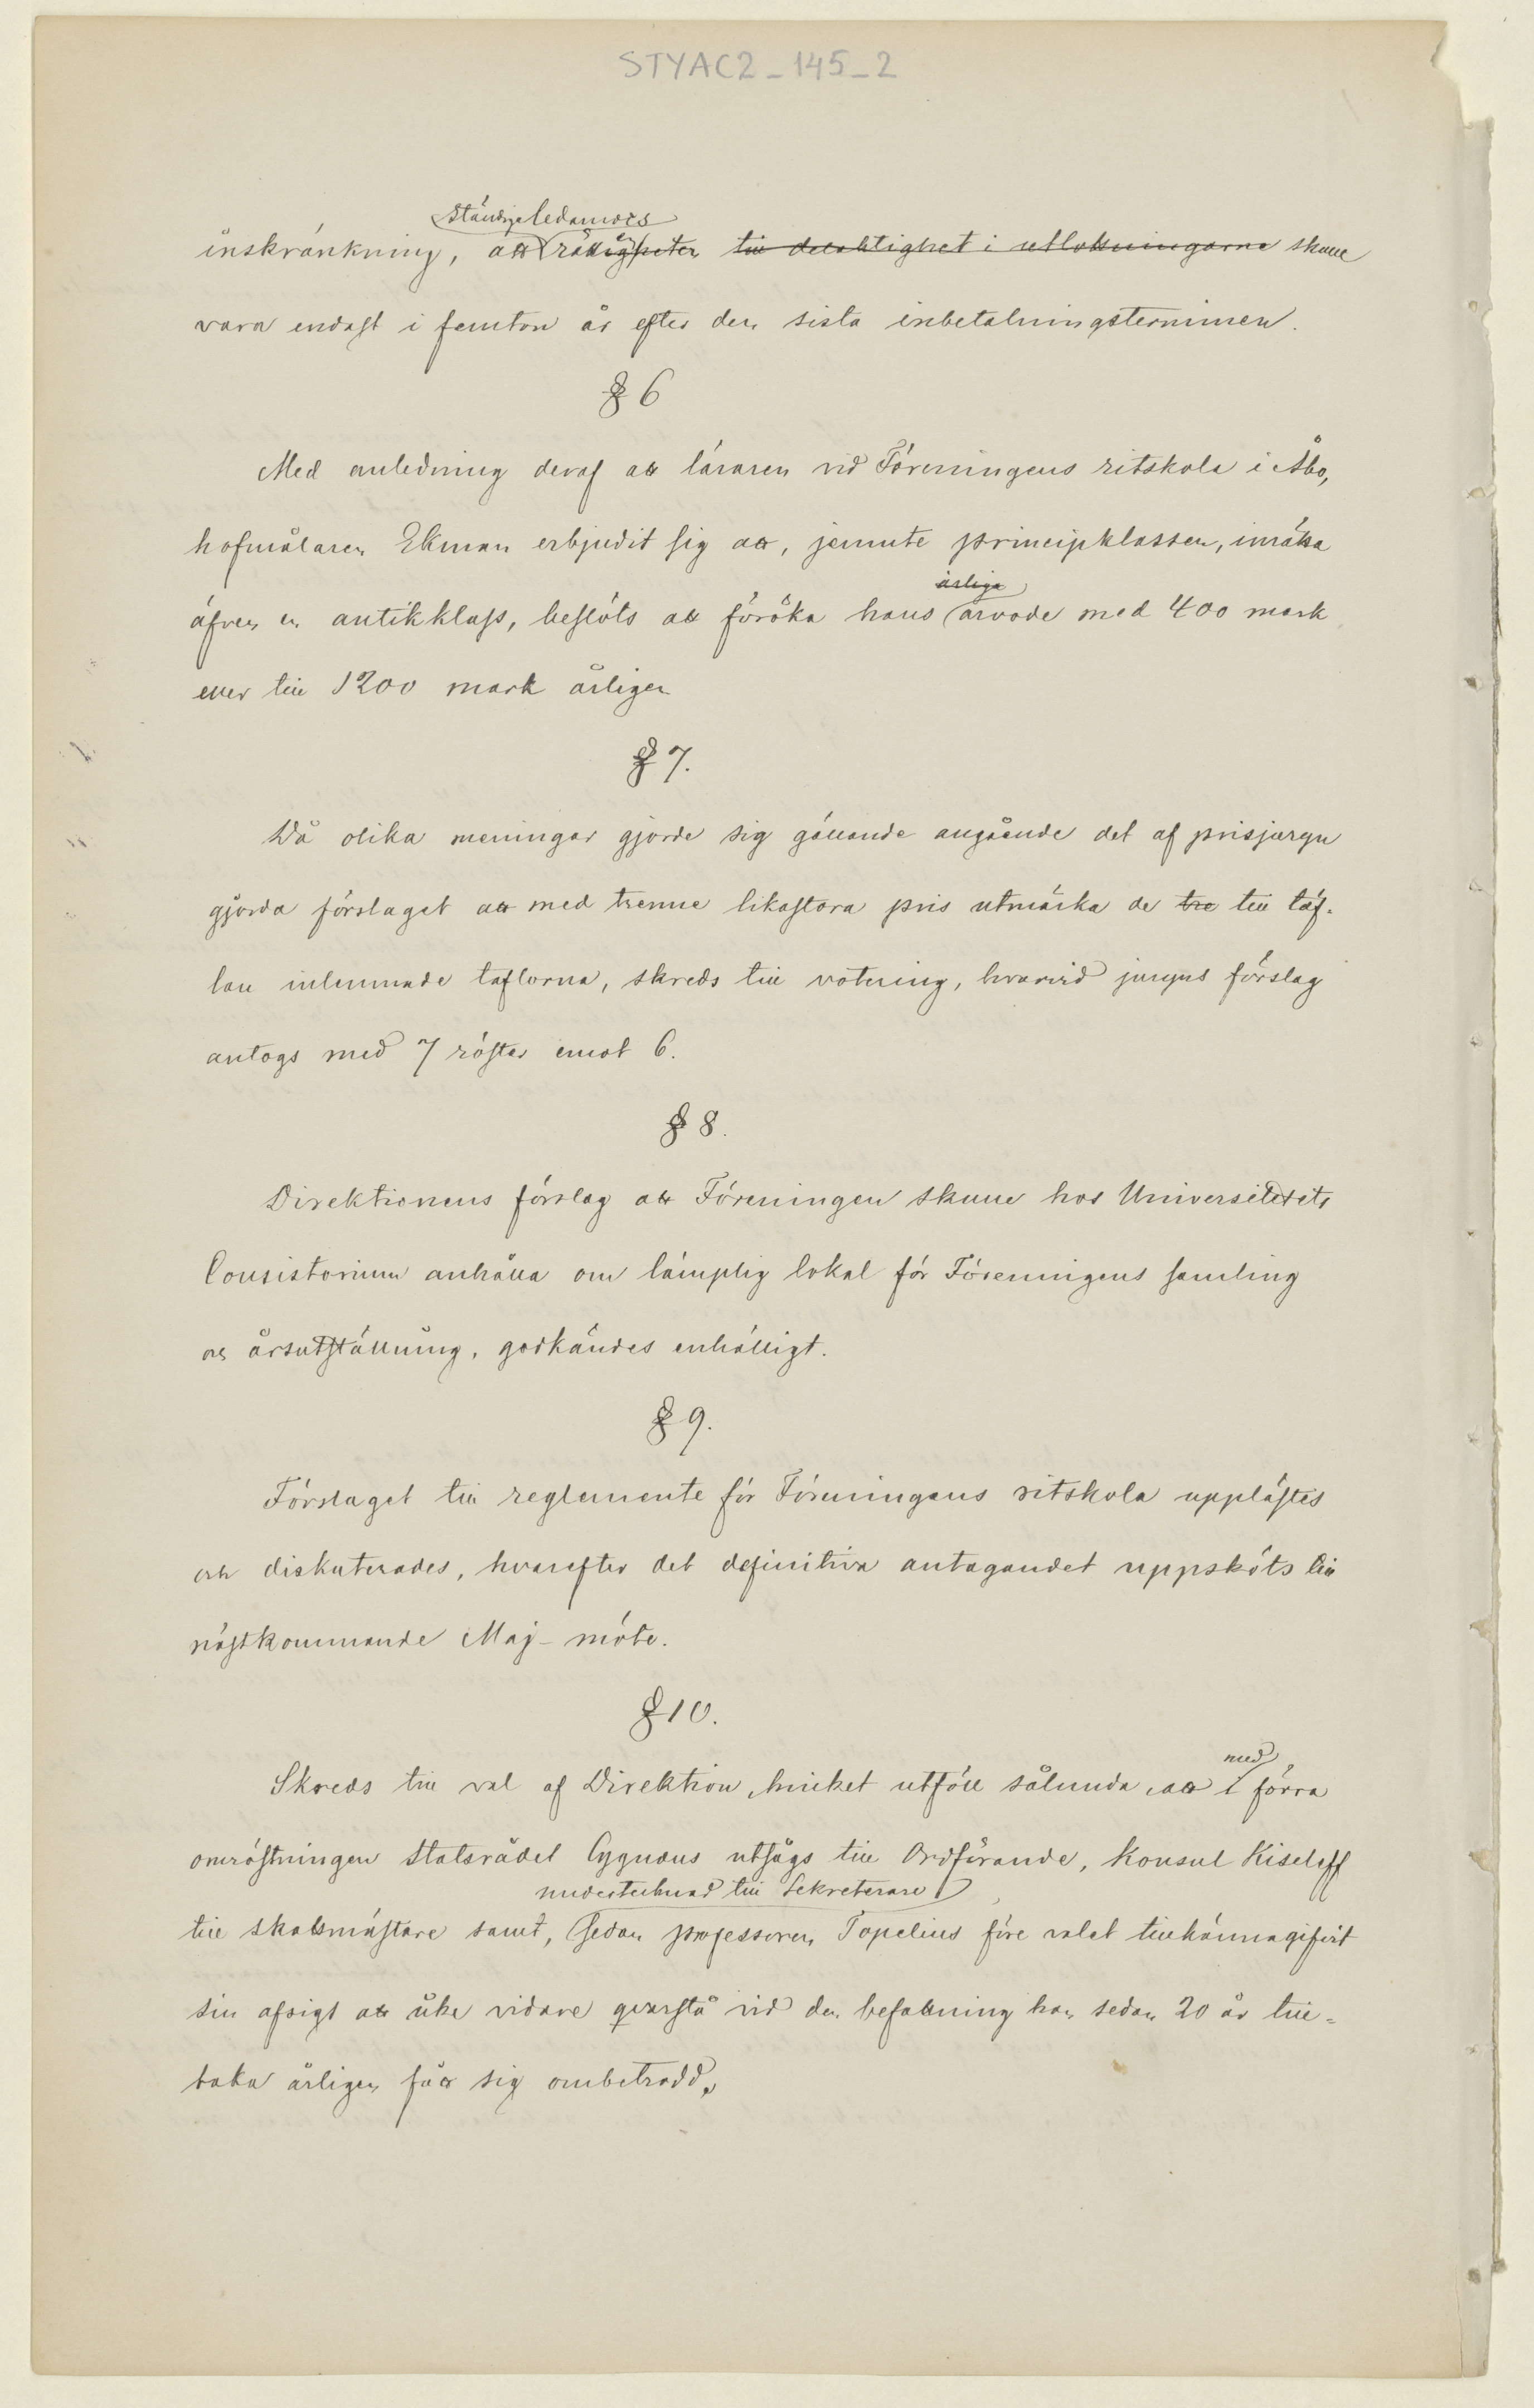 STYAC2_145_2
ständige ledamots
inskränkning, att rättigheten till delaktighet i utlottningarne skulle
vara endast i femton år efter den sista inbetalningsterminen.
§ 6
Med anledning deraf att läraren vid Föreningens ritskola i Åbo,
hofmålaren Ekman erbjudit sig att, jemnte principklassen, inrätta
årliga
äfven en antikklass, beslöts att föröka hans arvode med 400 mark
eller till 1200 mark årligen
§ 7.
Då olika meningar gjorde sig gällande angående det af prisjuryn
gjorda förslaget att med trenne likastora pris utmärka de tre till täf-
lan inlemnade taflorna, skreds till votering, hvarvid juryns förslag
antogs med 7 röster emot 6.
§ 8.
Direktionens förslag att Föreningen skulle hos Universitetets
Consistorium anhålla om lämplig lokal för Föreningens samling
och årsutställning, godkändes enhälligt.
§ 9.
Förslaget till reglemente för Föreningens ritskola upplästes
och diskuterades, hvarefter det definitiva antagandet uppsköts till
nästkommande Maj-möte.
§ 10.
med
Skreds till val af Direktion, hvilket utföll sålunda, att i förra
omröstningen statsrådet Cygnæus utsågs till Ordförande, Konsul Kiseleff
till Sekreterare
till skattmästare samt, sedan professoren Topelius före valet tillkännagifvit
sin afsigt att icke vidare qvarstå vid den befattning han sedan 20 år till-
baka årligen fått sig ombetrodd,